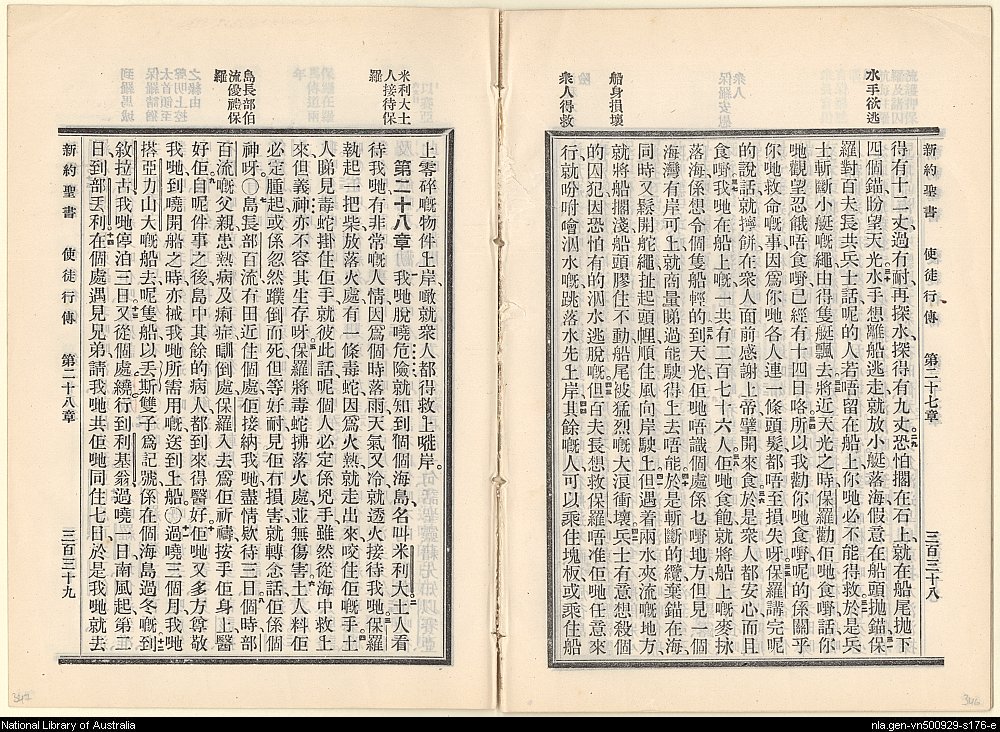 新約聖書 使徒行傳 第二十七章 三百三十八
水手欲逃
船身損壞
衆人得救
得有十二丈、過有耐再探水、探得有九丈。恐怕擱在石上、就在船尾抛下
四個錨、盼望天光。水手想離船逃走、就放小艇落海、假意在船頭抛錨。保
羅對百夫長共兵士話、呢的人若唔留在船上、你哋必不能得救。於是兵
士斬斷小艇嘅繩、由得隻艇飄去。將近天光之時、保羅勸佢哋食嘢、話、你
哋觀望忍餓唔食嘢、已經有十四日咯。所以我勸你哋食嘢、呢的係關乎
你哋救命嘅事、因爲你哋各人連一條頭髮、都唔至損失呀。保羅講完呢
的說話、就擰餅在衆人面前感謝上帝、擘開來食。於是衆人都安心、而且
食嘢。我哋在船上嘅、一共有二百七十六人。佢哋食飽、就將船上嘅麥抹
落海、係想令個隻船輕的。到天光、佢哋唔識個處係乜嘢地方、但見一個
海灣有岸可上、就商量睇過能駛得上去唔能。於是斬斷的纜、棄錨在海、
同時又鬆開舵繩、扯起頭𢃇、順住風向岸駛上。但遇着兩水夾流嘅地方、
就將船擱淺、船頭膠住不動、船尾被猛烈嘅大浪衝壞。兵士有意想殺個
的囚犯、因恐怕有的泅水逃脫嘅。但百夫長想救保羅、唔准佢哋任意來
行、就吩咐噲泅水嘅、跳落水先上岸。其餘嘅人、可以乘住塊板、或乘住船
新約聖書 使徒行傳 第二十八章 三百三十九
米利大土人接待保羅
島長部伯流優禮保羅
上零碎嘅物件上岸、噉就衆人都得救上嘥岸。
第二十八章 我哋脫嘵危險、就知到個個海島、名叫米利大。土人看
待我哋、有非常嘅人情、因爲個時落雨、天氣又冷、就透火接待我哋。保羅
執起一把柴放落火處、有一條毒蛇、因爲火熱就走出來、咬住佢嘅手。土
人睇見毒蛇掛住佢手、就彼此話、呢個人必定係兇手、雖然從海中救上
來、但義神亦不容其生存呀。保羅將毒蛇拂落火處、並無傷害。土人料佢
必定腫起、或係忽然蹼倒而死、但等好耐、見佢冇損害、就轉念話、佢係個
神呀。〇島長部百流有田近住個處、佢接納我哋、盡情欵待三日。個時部
百流嘅父親患熱病及痢症瞓倒處、保羅入去爲佢祈禱、按手佢身上、醫
好佢。自呢件事之後、島中其餘的病人都到來得醫好。佢哋又多方尊敬
我哋、到嘵開船之時、亦搣我哋所需用嘅送到上船。〇過嘵三個月、我哋
搭亞力山大嘅船去、呢隻船以丟斯雙子爲記號、係在個海島過冬嘅。到
敘拉古、我哋停泊三日、又從個處繞行到利基翁、過嘵一日、南風起、第二
日到部丟利。在個處遇見兄弟、請我哋共佢哋同住七日、於是我哋就去
342
346
National Library of Australia
nla.gen-vn500929-s176-e